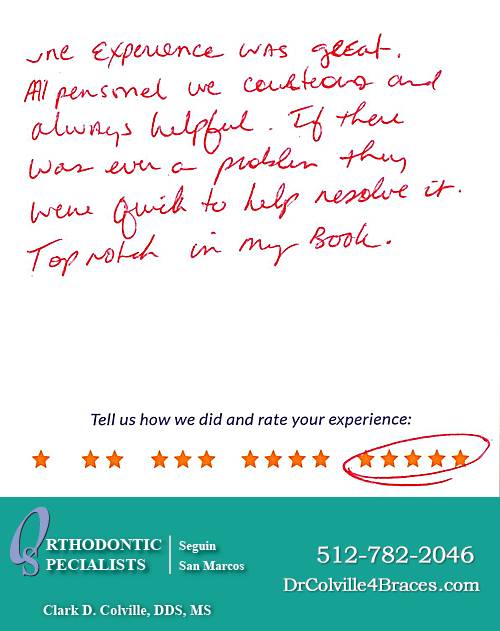 The Experience was great.
All personel we courteous and
always helpful. If there
was ever a problem they
were quick to help resolve it.
Top notch in my Book.
Tell us how we did and rate your experience:
OS
ORTHODONTIC
SPECIALISTS
Seguin
San Marcos
512-782-2046
DrColville4Braces.com
Clark D. Colville, DDS, MS